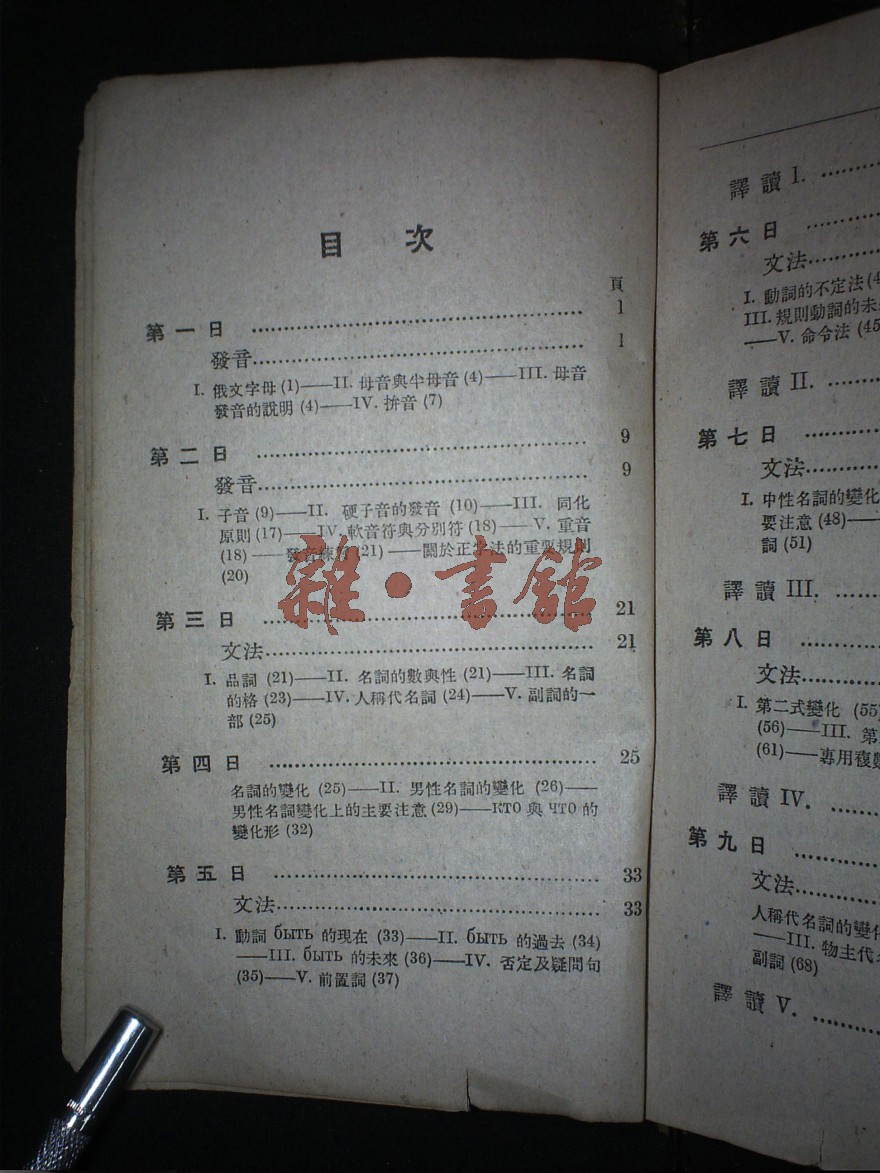 目 次
頁
第一日 …… 1
發音 …… 1
I. 俄文字母 (1)——II. 母音與半母音 (4)——III. 母音
發音的說明 (4)——IV. 拼音 (7)
第二日 …… 9
發音 …… 9
I. 子音 (9)——II. 硬子音的發音 (10)——III. 同化
原則 (17)——IV. 軟音符與分別符 (18)——V. 重音
(18)——發音練習 (21)——關於正字法的重要規則
(20)
第三日 …… 21
文法 …… 21
I. 品詞 (21)——II. 名詞的數與性 (21)——III. 名詞
的格 (23)——IV. 人稱代名詞 (24)——V. 副詞的一
部 (25)
第四日 …… 25
名詞的變化 (25)——II. 男性名詞的變化 (26)——
男性名詞變化上的主要注意 (29)——КТО 與 ЧТО 的
變化形 (32)
第五日 …… 33
文法 …… 33
I. 動詞 быть 的現在 (33)——II. быть 的過去 (34)
——III. быть 的未來 (36)——IV. 否定及疑問句
(35)——V. 前置詞 (37)
雜·書館
譯讀 I. ……
第六日 ……
文法 ……
I. 動詞的不定法 (4
III. 規則動詞的未
——V. 命令法 (45
譯讀 II. ……
第七日 ……
文法 ……
I. 中性名詞的變化
要注意 (48)——
詞 (51)
譯讀 III. ……
第八日 ……
文法 ……
I. 第二式變化 (55
(56)——III. 第
(61)——專用複數
譯讀 IV. ……
第九日 ……
文法 ……
人稱代名詞的變化
——III. 物主代
副詞 (68)
譯讀 V. ……